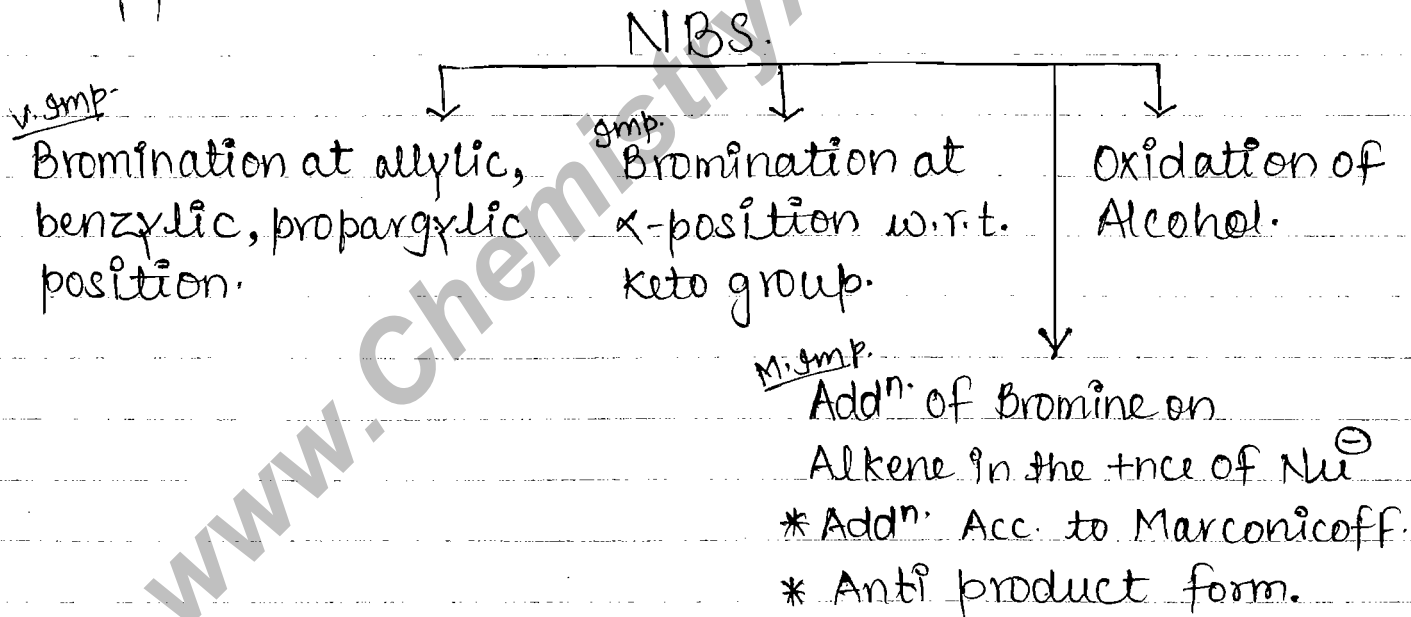 NBS.
V. Imp.
Bromination at allylic,
benzylic, propargylic
position.
Imp.
Bromination at
α-position w.r.t.
keto group.
Oxidation of
Alcohol.
M. Imp.
Addn. of Bromine on
Alkene in the +nce of Nu⊖
* Addn. Acc. to Marconicoff.
* Anti product form.
www. Chemistry